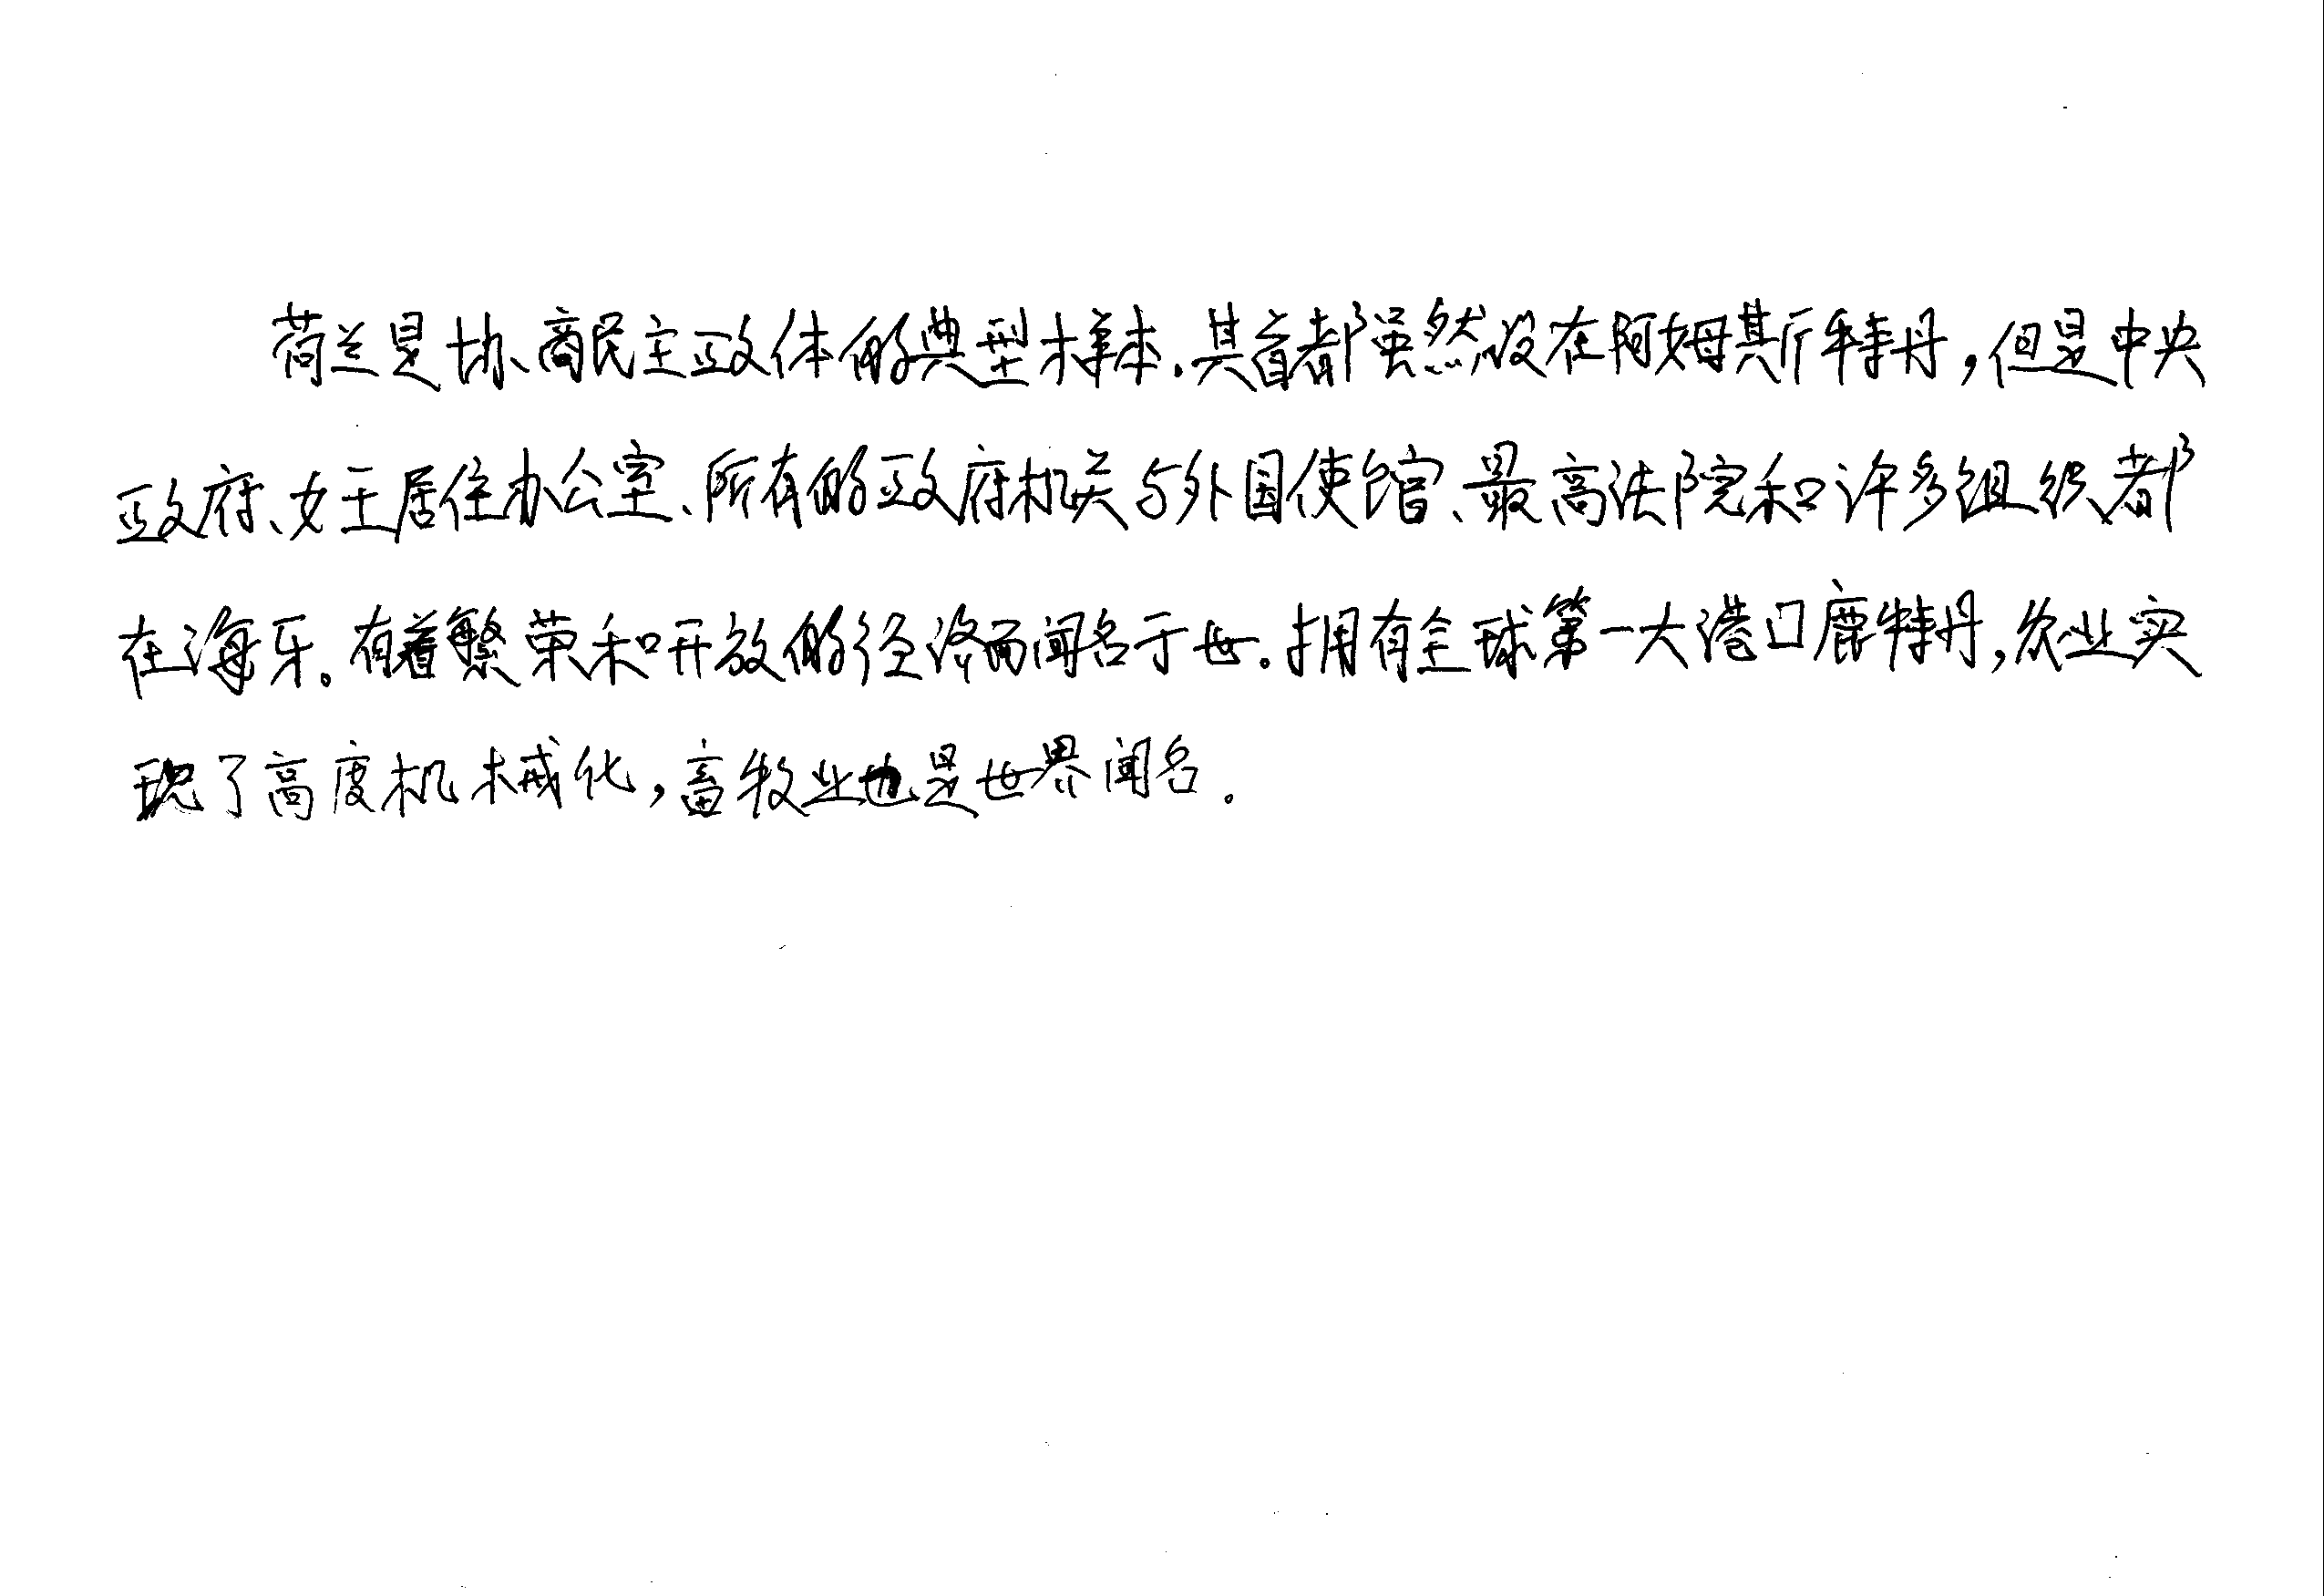 荷兰是协商民主政体的典型样本.其首都虽然设在阿姆斯特丹,但是中央
政府、女王居住办公室、所有的政府机关与外国使馆、最高法院和许多组织都
在海牙。有着繁荣和开放的经济而闻名于世。拥有全球第一大港口鹿特丹,农业实
现了高度机械化,畜牧业也是世界闻名.